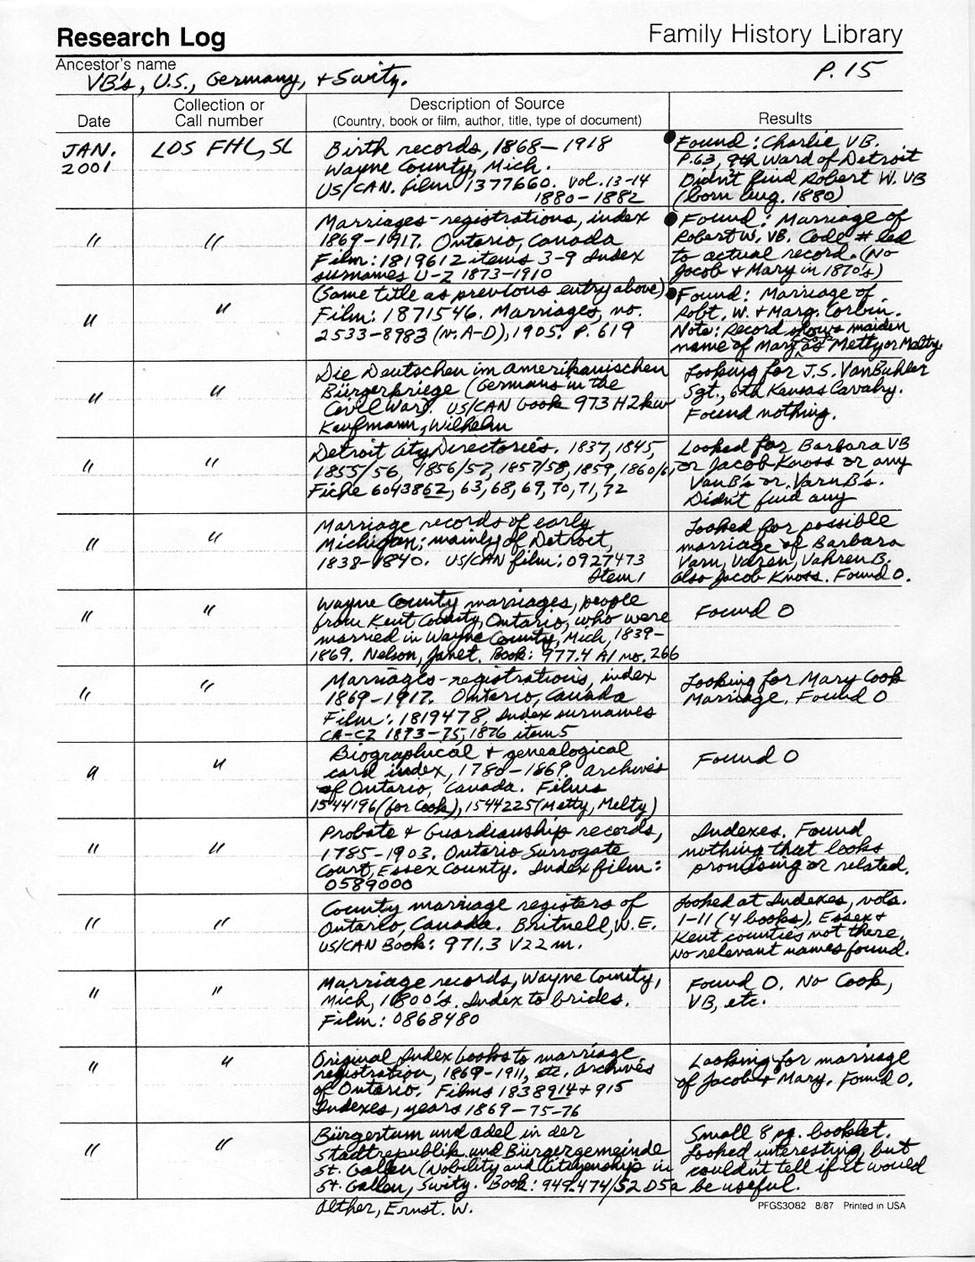 Research Log
Family History Library
Ancestor's name
VB's, U.S., Germany, + Switz.
P. 15
Date
Collection or
Call number
Description of Source
(Country, book or film, author, title, type of document)
Results
JAN.
2001
LDS FHL, SL
Birth records, 1868–1918
Wayne County, Mich.
US/CAN. film 1377660. vol. 13-14
1880–1882
Found: Charlie VB.
P.63, 9th Ward of Detroit
Didn't find Robert W. VB
(born Aug. 1880)
"
"
Marriages-registrations, index
1869–1917. Ontario, Canada
Film: 1819612 items 3-9 Index
surnames U-Z 1873-1910
Found: Marriage of
Robert W. VB. Code # led
to actual record. (No
Jacob & Mary in 1870's)
"
"
(Same title as previous entry above)
Film: 1871546. Marriages, no.
2533-8983 (N. A-D), 1905. P. 619
Found: Marriage of
Robt. W. & Marg. Corbin.
Note: Record shows maiden
name of Mary as Metty or Malty
"
"
Die Deutschen im amerikanischen
Bürgerkriege (Germans in the
Civil War). US/CAN book 973 H2kw
Kaufmann, Wilhelm
Looking for J.S. VanBuhler
Sgt., 6th Kansas Cavalry.
Found nothing.
"
"
Detroit City Directories. 1837, 1845,
1855/56, 1856/57, 1857/58, 1859, 1860/61,
Fiche 6043862, 63, 68, 69, 70, 71, 72
Looked for Barbara VB
or Jacob Knoss or any
VanB's or VarnB's.
Didn't find any
"
"
Marriage records of early
Michigan; mainly of Detroit,
1838-1840. US/CAN film: 0927473
Item 1
Looked for possible
marriage of Barbara
Varn, Varen, Vahren B.
Also Jacob Knoss. Found 0.
"
"
Wayne County marriages, people
from Kent County, Ontario, who were
married in Wayne County, Mich, 1839–
1869. Nelson, Janet. Book: 977.4 A1 no. 266
Found 0
"
"
Marriages-registrations, index
1869-1917. Ontario, Canada
Film: 1819478, Index surnames
CA-CZ 1873-75, 1876 item 5
Looking for Mary Cook
Marriage. Found 0
"
"
Biographical & genealogical
card index, 1780-1869. Archives
of Ontario, Canada. Films
1544196 (for Cook), 1544225 (Metty, Melty)
Found 0
"
"
Probate & Guardianship records,
1785-1903. Ontario Surrogate
Court, Essex County. Index film:
0589000
Indexes. Found
nothing that looks
promising or related.
"
"
County marriage registers of
Ontario, Canada. Britnell, W.E.
US/CAN Book: 971.3 V22m.
Looked at Indexes, vols.
1-11 (4 books), Essex &
Kent counties not there.
No relevant names found.
"
"
Marriage records, Wayne County,
Mich, 1800's. Index to brides.
Film: 0868480
Found 0. No Cook,
VB, etc.
"
"
Original Index books to marriage
registration, 1869-1911, etc. Archives
of Ontario. Films 1838914 + 915
Indexes, years 1869-75-76
Looking for marriage
of Jacob & Mary. Found 0.
"
"
Bürgertum und Adel in der
Stadtrepublik und Bürgergemeinde
St. Gallen (Nobility and Citizenship in
St. Gallen, Switz. Book: 949.474/S2 D5a
Alther, Ernst. W.
Small 8 pg. booklet.
Looked interesting, but
couldn't tell if it would
be useful.
PFGS3082 8/87 Printed in USA